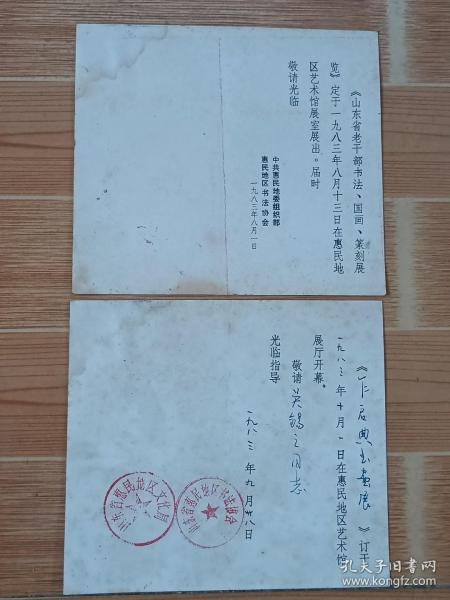 《山东省老干部书法、国画、篆刻展
览》定于一九八三年八月十三日在惠民地
区艺术馆展室展出。届时
敬请光临
中共惠民地委组织部
惠民地区书法协会
一九八三年八月一日
《乍启典书画展》订于
一九八三年十月一日在惠民地区艺术馆
展厅开幕。
敬请吴锡之同志
光临指导
一九八三年九月廿八日
山东省惠民地区书法协会
山东省惠民地区文化局
孔夫子旧书网